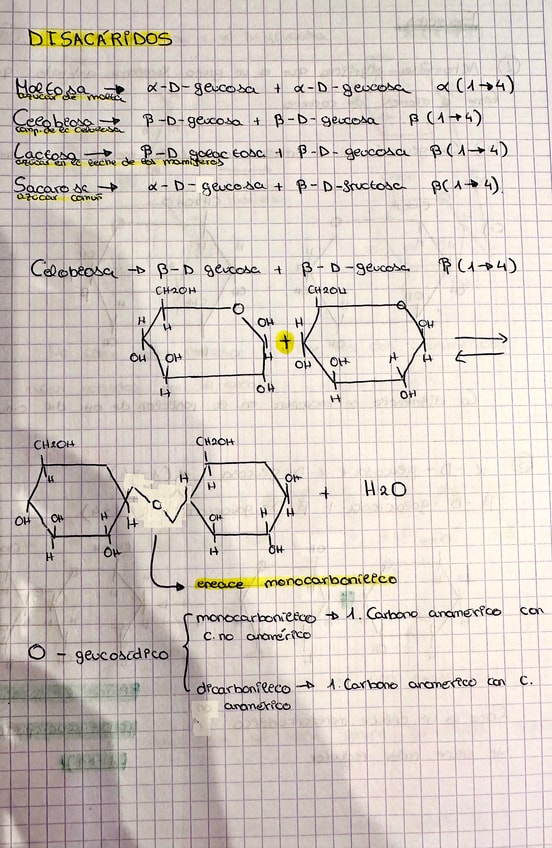 DISACÁRIDOS
Maltosa → α-D-glucosa + α-D-glucosa α(1→4)
azúcar de malta
Celobiosa → β-D-glucosa + β-D-glucosa β(1→4)
comp. de la celulosa
Lactosa → β-D galactosa + β-D-glucosa β(1→4)
azúcar en la leche de los mamíferos
Sacarosa → α-D-glucosa + β-D-fructosa β(1→4)
azúcar común
Celobiosa → β-D glucosa + β-D-glucosa β(1→4)
CH2OH CH2OH
O O
H H OH H OH
H + H
OH OH H OH OH H
H OH H OH
CH2OH CH2OH
H H H OH
O + H2O
OH OH H H OH H H
H OH H OH
enlace monocarbonílico
O - glucosídico
monocarbonílico → 1. Carbono anomérico con
C. no anomérico
dicarbonílico → 1. Carbono anomérico con C.
anomérico